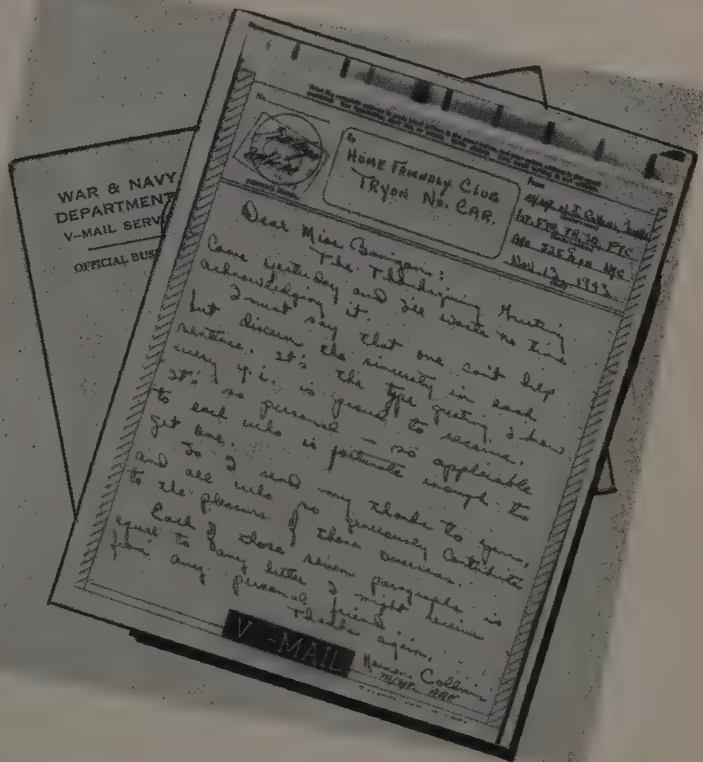 WAR & NAVY
DEPARTMENT
V-MAIL SERV
OFFICIAL BUS
No.
To
HOME FRIENDLY CLUB
TRYON NO. CAR.
From
Nov. 13, 1943
Dear Miss
The Thanksgiving Greeting
came yesterday and I'll waste no time
acknowledging it.
I must say that one can't help
but discern the sincerity in each
sentence. It's the type greeting I know
every G.I. is proud to receive.
It's so personal – so applicable
to each who is fortunate enough to
get one.
So I send my thanks to you,
and all who so generously contribute
to the pleasure of those overseas.
Each of those seven paragraphs is
equal to any letter I might receive
from any personal friend.
Thanks again,
V-MAIL